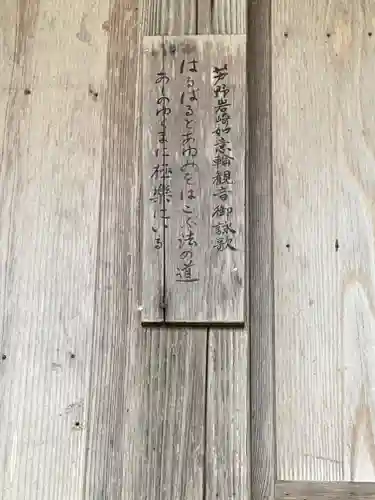 芳野岩崎如意輪観音御詠歌
はるばるとあゆみをはこぶ法の道
あしのゆくまに極樂にいる